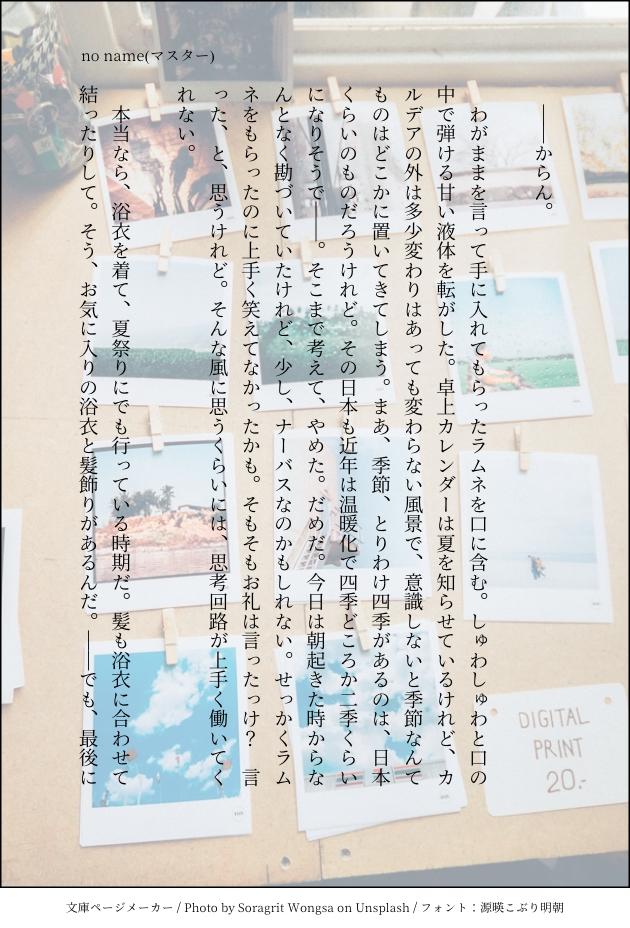 no name(マスター)
――からん。
わがままを言って手に入れてもらったラムネを口に含む。しゅわしゅわと口の
中で弾ける甘い液体を転がした。卓上カレンダーは夏を知らせているけれど、カ
ルデアの外は多少変わりはあっても変わらない風景で、意識しないと季節なんて
ものはどこかに置いてきてしまう。まあ、季節、とりわけ四季があるのは、日本
くらいのものだろうけれど。その日本も近年は温暖化で四季どころか二季くらい
になりそうで――。そこまで考えて、やめた。だめだ。今日は朝起きた時からな
んとなく勘づいていたけれど、少し、ナーバスなのかもしれない。せっかくラム
ネをもらったのに上手く笑えてなかったかも。そもそもお礼は言ったっけ？　言
った、と、思うけれど。そんな風に思うくらいには、思考回路が上手く働いてく
れない。
本当なら、浴衣を着て、夏祭りにでも行っている時期だ。髪も浴衣に合わせて
結ったりして。そう、お気に入りの浴衣と髪飾りがあるんだ。――でも、最後に
DIGITAL
PRINT
20.-
文庫ページメーカー / Photo by Soragrit Wongsa on Unsplash / フォント：源暎こぶり明朝